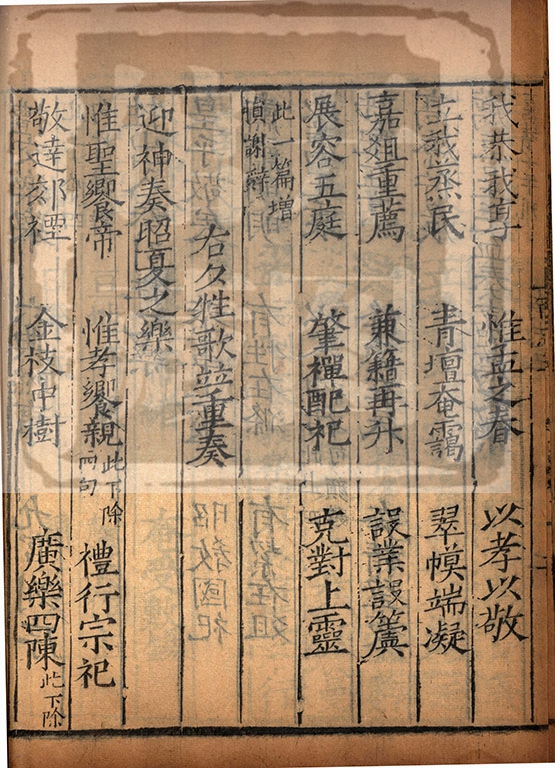 我恭我享 惟孟之春 以孝以敬
立我烝民 青壇奄靄 翠幙端凝
嘉爼重薦 兼籍再升 設業設簴
展容五庭 肇禋配祀 克對上靈
此一篇增
損謝辭
右夕牲歌竝重奏
迎神奏昭夏之樂
惟聖饗帝 惟孝饗親 此下除兩句 禮行宗祀
敬達郊禋 金枝中樹 廣樂四陳 此下除